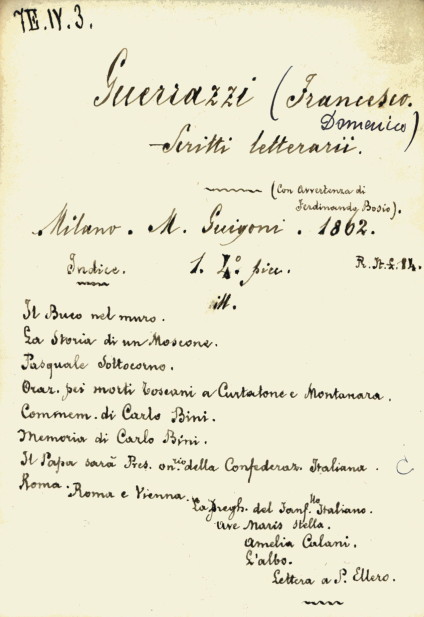 7E.IV.3.
Guerrazzi (Francesco.
Domenico)
Scritti letterarii.
(Con Avvertenza di
Ferdinando Bosio).
Milano. M. Guigoni. 1862.
Indice. 1. 4º. picc. R. It. L. 84.
ill.
Il Buco nel muro.
La Storia di un Moscone.
Pasquale Sottocorno.
Oraz. pei morti Toscani a Curtatone e Montanara.
Commem. di Carlo Bini.
Memoria di Carlo Bini.
Il Papa sarà Pres. on.rio della Confederaz. Italiana. C
Roma.
Roma e Vienna.
La Pregh. del Fanf.llo Italiano.
Ave Maris Stella.
Amelia Calani.
L'albo.
Lettera a P. Ellero.